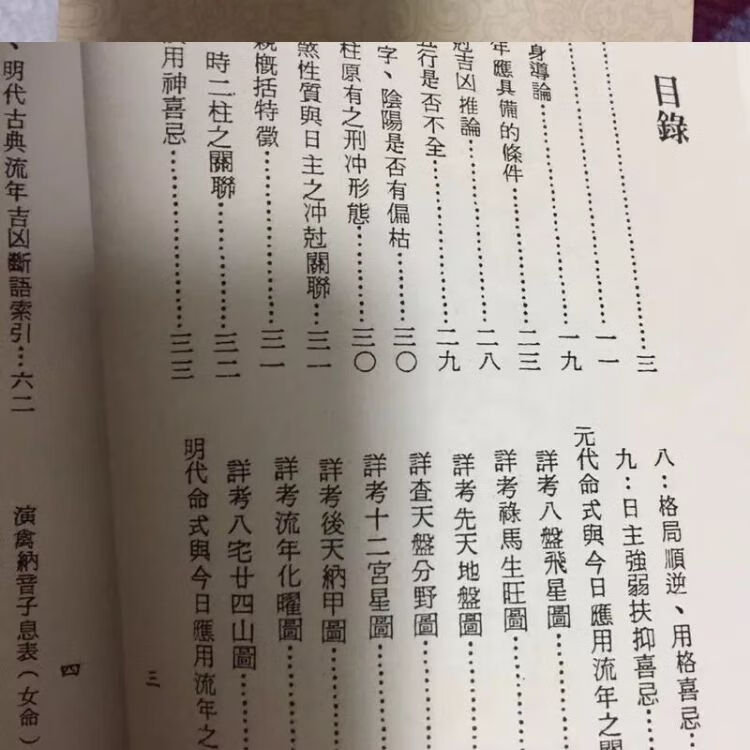 目錄
……三
……一一
身導論……一九
年應具備的條件……二三
吉凶推論……二八
行是否不全……二九
字、陰陽是否有偏枯……三〇
柱原有之刑冲形態……三〇
煞性質與日主之冲尅關聯……三一
親概括特徵……三一
時二柱之關聯……三二
用神喜忌……三三
八：格局順逆、用格喜忌…
九：日主強弱扶抑喜忌…
元代命式與今日應用流年之關
詳考八盤飛星圖……
詳考祿馬生旺圖……
詳考先天地盤圖……
詳查天盤分野圖……
詳考十二宮星圖……
詳考後天納甲圖……
詳考流年化曜圖……
詳考八宅廿四山圖……
明代命式與今日應用流年之
三
、明代古典流年吉凶斷語索引…六二
演禽納音子息表（女命）
四